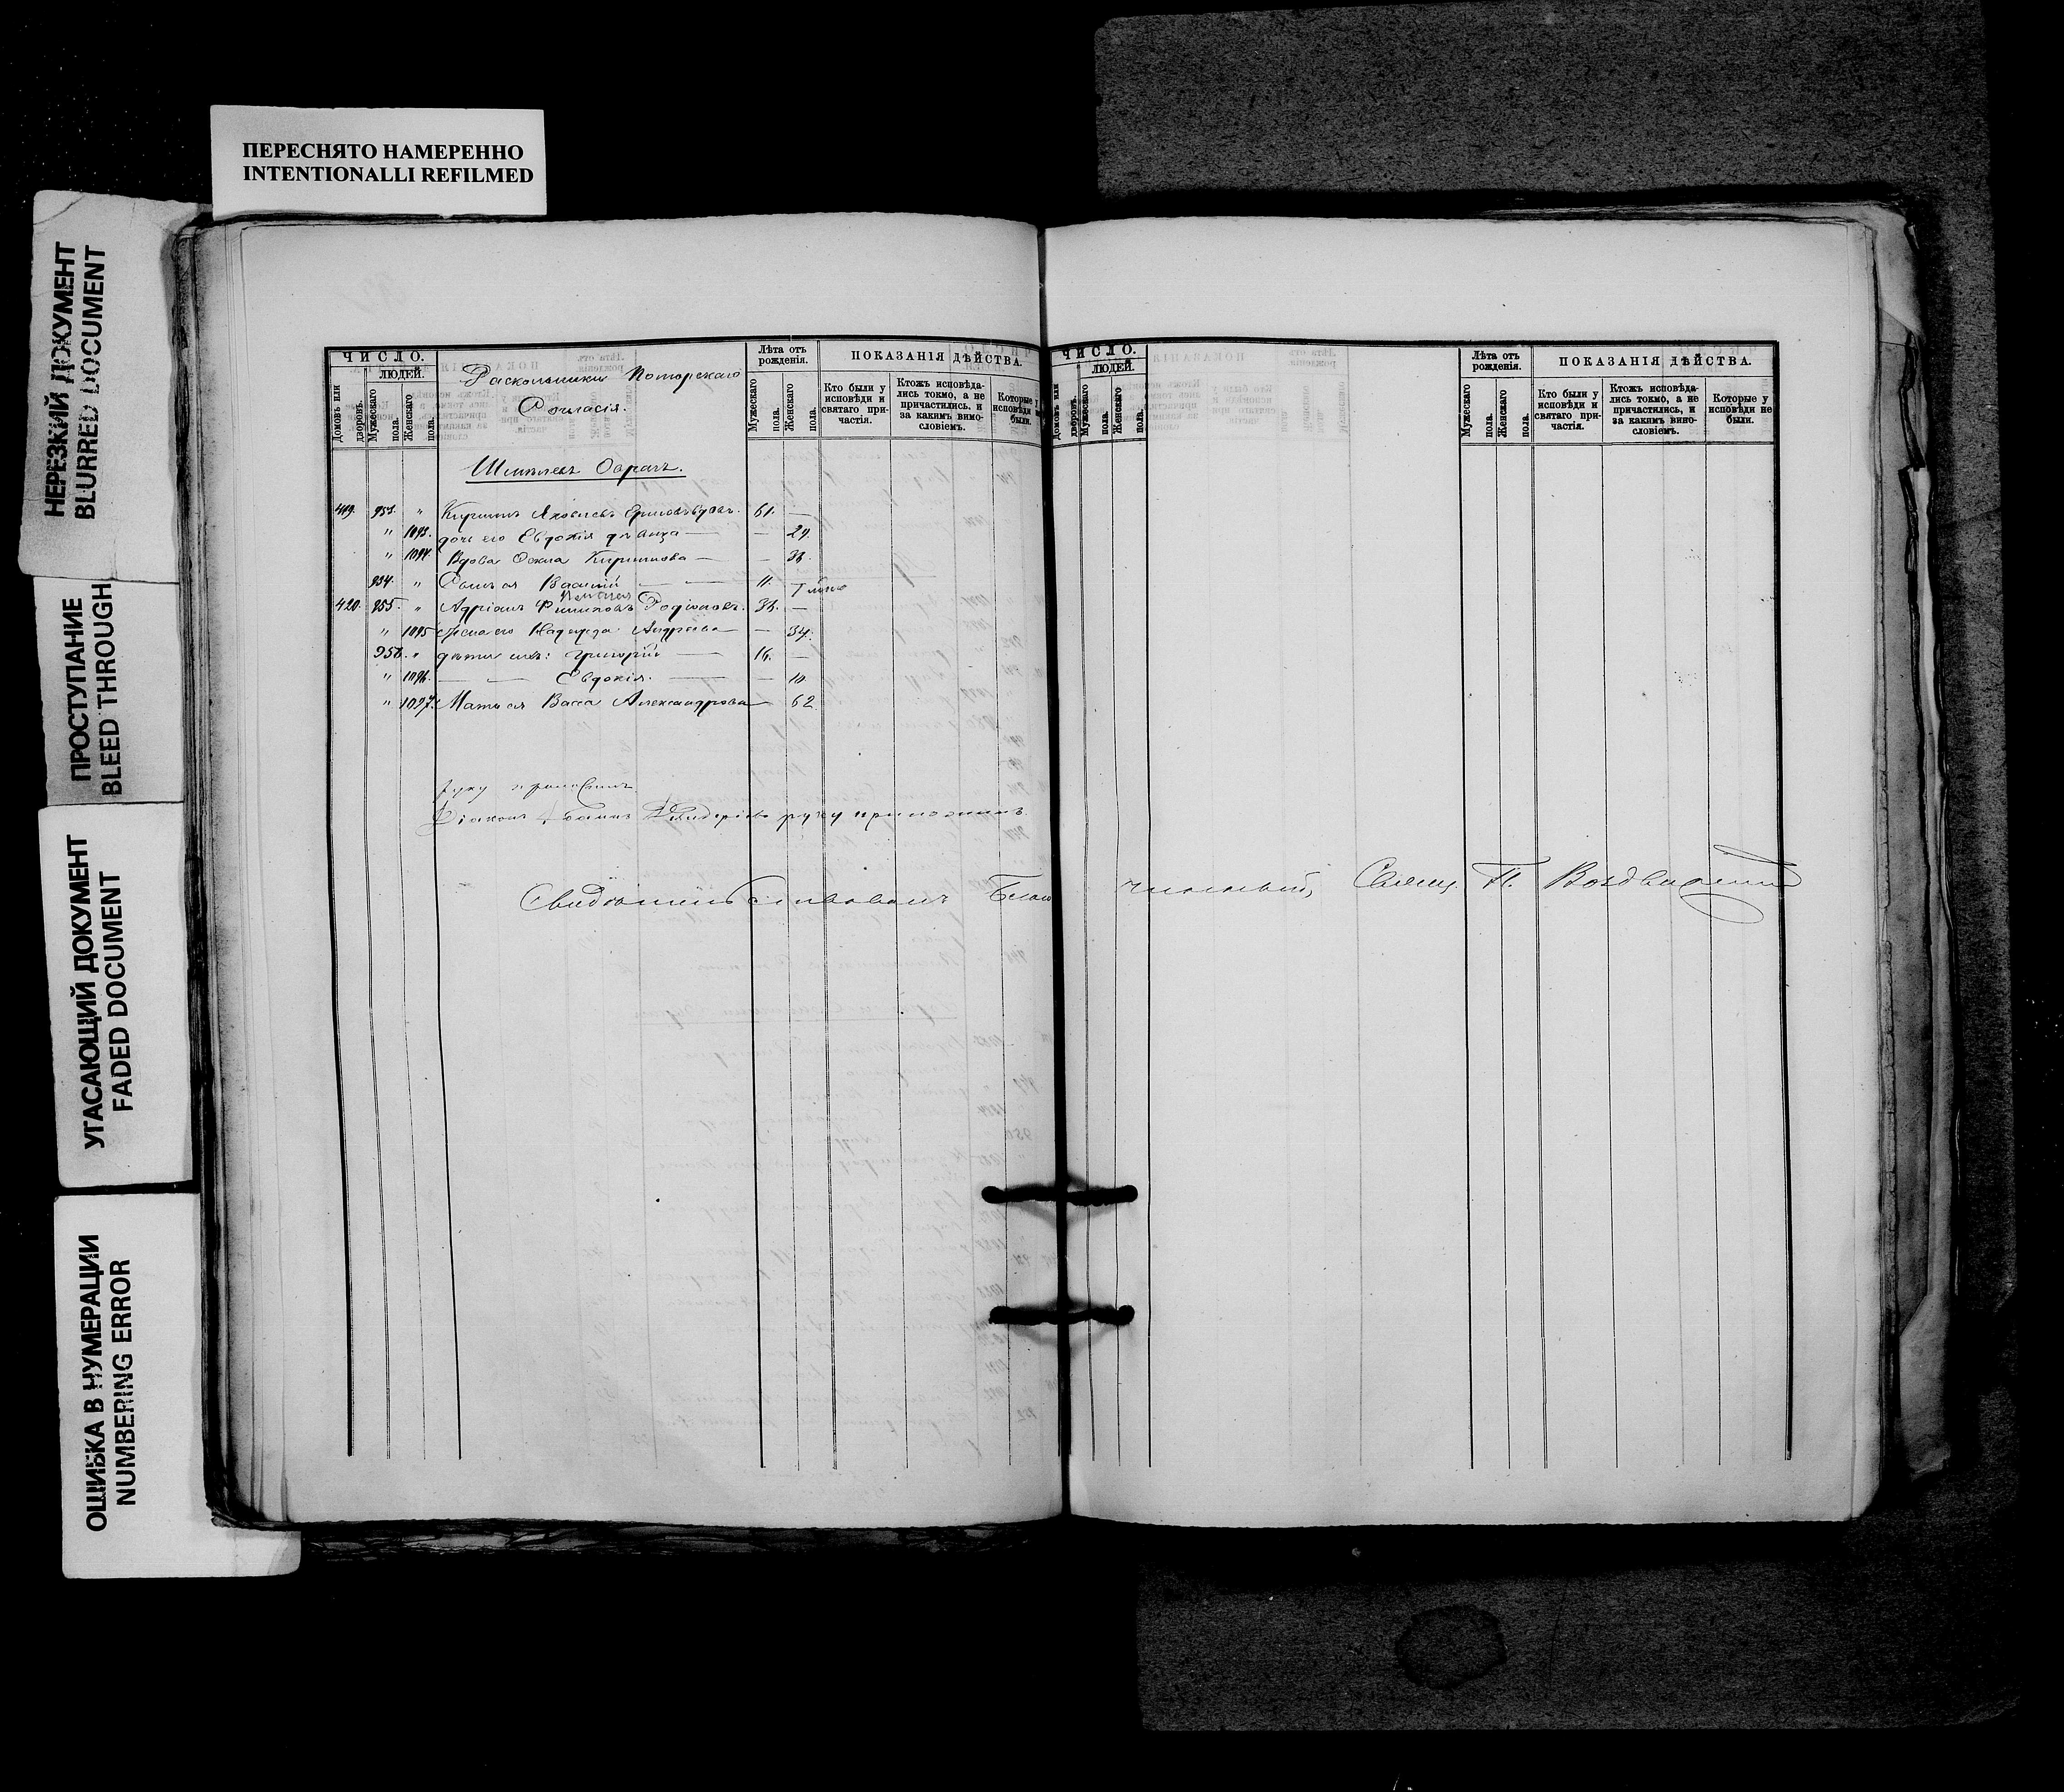 ПЕРЕСНЯТО НАМЕРЕННО
INTENTIONALLI REFILMED
НЕРЕЗКИЙ ДОКУМЕНТ
BLURRED DOCUMENT
ПРОСТУПАНИЕ
BLEED THROUGH
УГАСАЮЩИЙ ДОКУМЕНТ
FADED DOCUMENT
ОШИБКА В НУМЕРАЦИИ
NUMBERING ERROR
ЧИСЛО.
ЛЮДЕЙ.
Домовъ или дворовъ.
Мужескаго пола.
Женскаго пола.
Раскольники Поморскаго
Согласія.
Лѣта отъ рожденія.
Мужескаго пола.
Женскаго пола.
ПОКАЗАНІЯ ДѢЙСТВА.
Кто были у исповѣди и святаго причастія.
Ктожъ исповѣдались токмо, а не причастились, и за какимъ винословіемъ.
Которые у исповѣди не были.
Оврагъ.
419. 953. " Яковлевъ 61. —
" 1093. дочь его Евдокія дѣвица — — 29.
" 1094. Вдова — —
954. " Сынъ ея Василій — — 11.
420. 955. " Адріанъ Филиповъ Родіоновъ. —
" 1095 Жена его Надежда Андреева — — 34.
956. " дѣти ихъ: Григорій — 16. —
" 1096. — — Евдокія. — — 10.
" 1097. Мать ея Васса Александрова — 62.
руку приложилъ
Діаконъ руку приложилъ.
Свидѣтельствовалъ Благочинный, Свящ. П. Воздвиженскій
ЧИСЛО.
ЛЮДЕЙ.
Домовъ или дворовъ.
Мужескаго пола.
Женскаго пола.
Лѣта отъ рожденія.
Мужескаго пола.
Женскаго пола.
ПОКАЗАНІЯ ДѢЙСТВА.
Кто были у исповѣди и святаго причастія.
Ктожъ исповѣдались токмо, а не причастились, и за какимъ винословіемъ.
Которые у исповѣди не были.